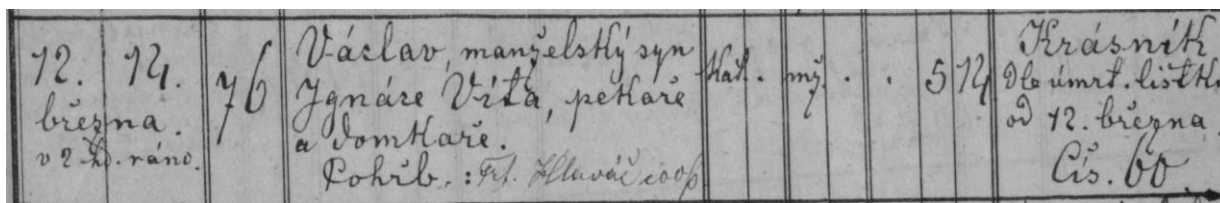 12. 14.
března.
v 2 hd. ráno.
76
Václav, manželský syn
Ignáce Víta, pekaře
a domkaře.
Pohřb.: Fr. Hlaváč coop
kat. mž. . . 5 14
Krásník
Dle úmrt. lístku
od 12. března
Čís. 60